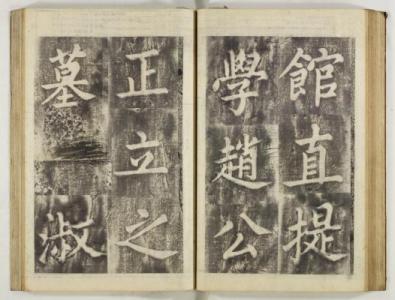 館直提
學趙公
正立之
墓淑